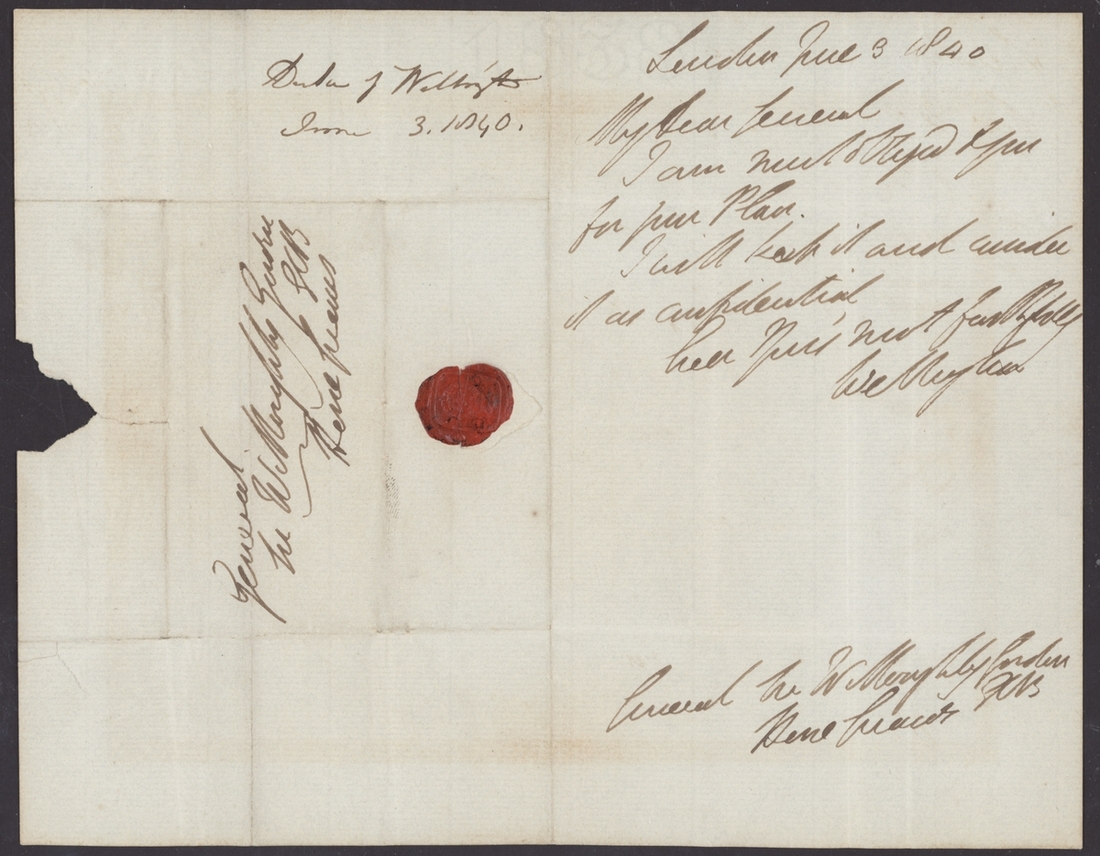 Duke of Wellington
June 3. 1840.
General
Sir Willoughby Gordon
GCB
Horse Guards
London June 3 1840
My Dear General
I am much obliged to you
for your Plan.
I will keep it and consider
it as confidential
Ever Yours most faithfully
Wellington
General Sir Willoughby Gordon
Horse Guards